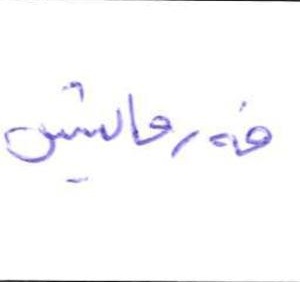 فەرمایش